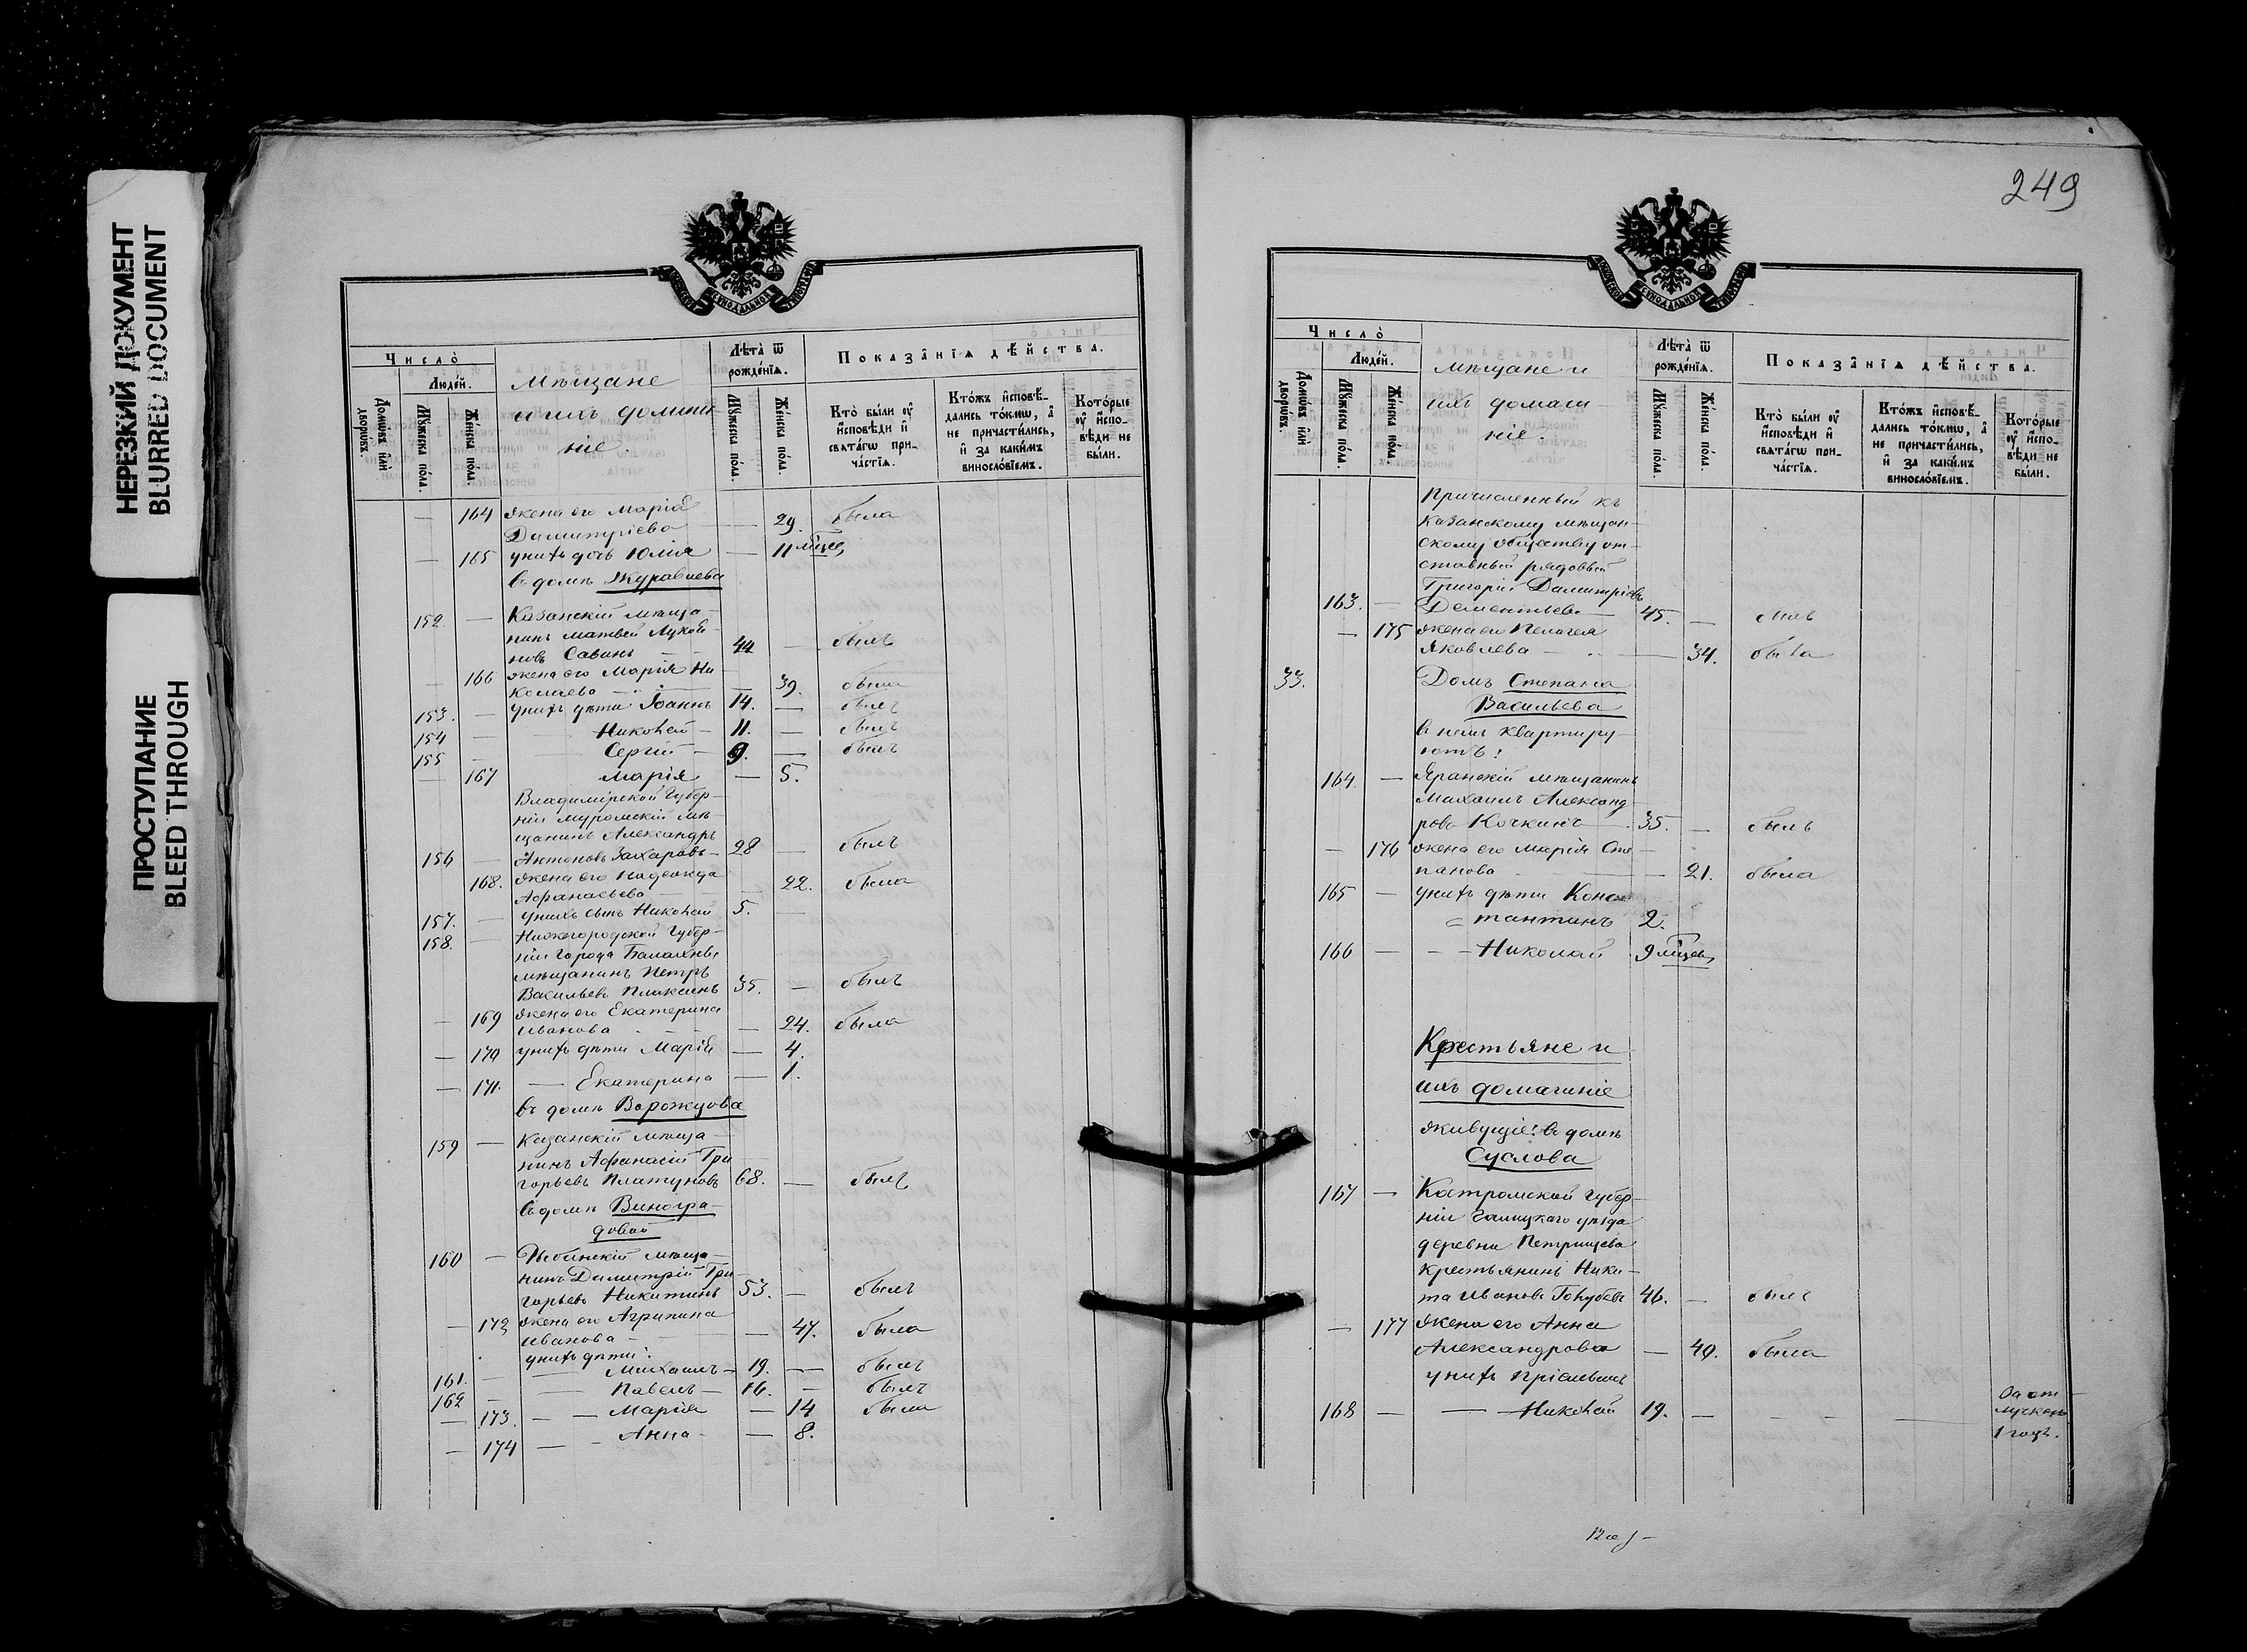 НЕРЕЗКИЙ ДОКУМЕНТ
BLURRED DOCUMENT
ПРОСТУПАНИЕ
BLEED THROUGH
Число̀
Людей.
Домѡвъ или дворѡвъ.
Мꙋжеска пола.
Женска пола.
Мѣщане
и ихъ домаш
ніе.
Лѣта ѿ рожденїѧ.
Мꙋжеска пола.
Женска пола.
Показанїѧ дѣйства.
Кто были ᲂу҆ исповѣди и свѧтагѡ причастїѧ.
Ктожъ исповѣдались токмѡ, а не причастились, и за какимъ винословїемъ.
Которые ᲂу҆ исповѣди не были.
— 164 жена его Марія
Димитріева — 29. была
— 165 у нихъ дочь Юлія — 11 мѣсец,
въ домѣ Журавлева
152 — Казанскій мѣща-
нинъ Матвей Лукоя-
новъ Савинъ — 44 — былъ
— 166 жена его Марія Ни-
колаева — 39. была
153. — у нихъ дѣти Іоаннъ 14. — былъ
154 — Николай — 11. — былъ
155 — Сергій — 9. — былъ
— 167 Марія — 5.
Владимірской Губер-
ніи Муромскій мѣ-
щанинъ Александръ
156 — Антоновъ Захаровъ — 28 — былъ
168. жена его Надежда
Афанасьева — 22. была
157. — у нихъ сынъ Николай 5. —
158. — Нижегородской Губер-
ніи города Балахны
мѣщанинъ Петръ
Васильевъ Плаксинъ 35. — былъ
— 169 жена его Екатерина
Иванова — 24. была
— 170 у нихъ дѣти Марія — 4.
— 171. — Екатерина — 1.
въ домѣ Ворожцова
159 — Казанскій мѣща-
нинъ Афанасій Гри
горьевъ Платуновъ 68. — былъ
въ домѣ Виногра-
довой
160 — мѣща-
нинъ Димитрій Гри-
горьевъ Никитинъ 53. — былъ
— 172 жена его Агрипина
Иванова — 47. была
у нихъ дѣти:
161. — Михаилъ — 19. — былъ
162 — Павелъ — 16. — былъ
— 173. — — Марія — 14 была
— 174 — — Анна — — 8.
249
Число̀
Людей.
Домѡвъ или дворѡвъ.
Мꙋжеска пола.
Женска пола.
Мѣщане и
ихъ домаш
ніе.
Лѣта ѿ рожденїѧ.
Мꙋжеска пола.
Женска пола.
Показанїѧ дѣйства.
Кто были ᲂу҆ исповѣди и свѧтагѡ причастїѧ.
Ктожъ исповѣдались токмѡ, а не причастились, и за какимъ винословїемъ.
Которые ᲂу҆ исповѣди не были.
Причисленный къ
Казанскому мѣщан-
скому обществу от-
ставный рядовый
Григорій Димитріевъ
163. — Дементьевъ — 45. — былъ
— 175 жена его Пелагея
Яковлева — 34. была
33. Домъ Степана
Васильева
в немъ квартиру-
ютъ:
164. — Яранскій мѣщанинъ
Михаилъ Александ
ровъ Кочкинъ — 35. — былъ
— 176 жена его Марія Сте-
панова — 21. была
165 — у нихъ дѣти Конс
тантинъ 2.
166 — — — Николай 9 мѣсец,
Крестьяне и
ихъ домашніе
живущіе: въ домѣ
Суслова
167 — Костромской Губер-
ніи Галицкаго уѣзда
деревни Петрищева
крестьянинъ Ники-
та Ивановъ Голубевъ 46. — былъ
— 177 жена его Анна
Александрова — 40. была
у нихъ пріемышъ
168 — — Николай 19. — — — За от-
лучкою
1 годъ.